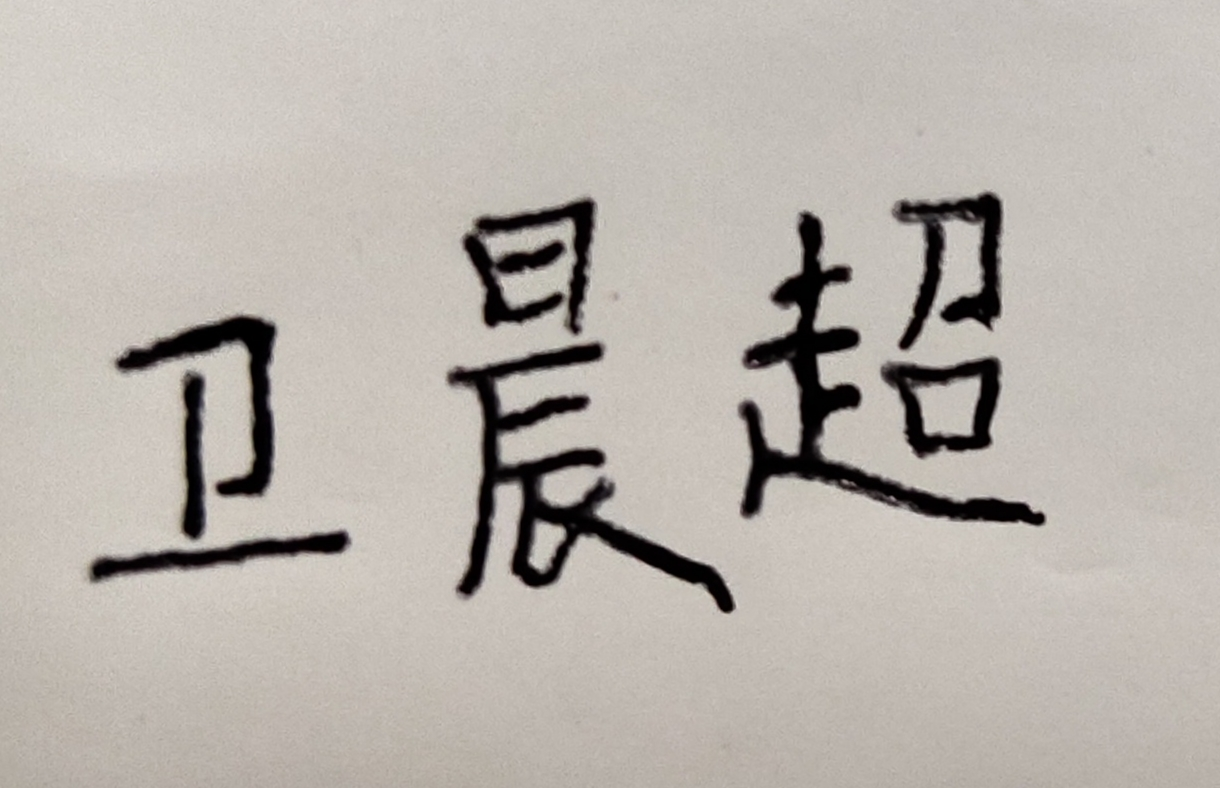 卫晨超